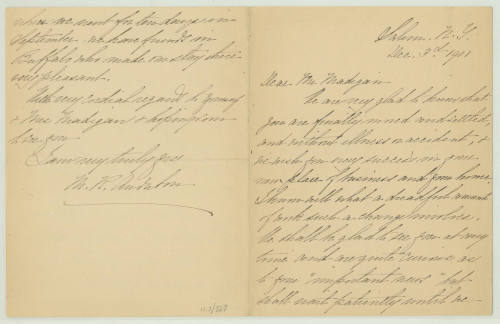 Salem. N. Y.
Dec. 3rd 1901
Dear Mr. Madigan
We are very glad to know that
you are finally moved and settled,
and without illness or accident, &
we wish you every success in your
new place of business and your home.
I know well what a dreadful amount
of work such a change involves.
We shall be glad to see you at any
time and are quite curious as
to your "important news" but
shall wait patiently until we
when we went for ten days in
September. We have friends in
Buffalo who made our stay there
very pleasant.
With very cordial regard to yourself
& Mrs Madigan &
to see you
I am very truly yours